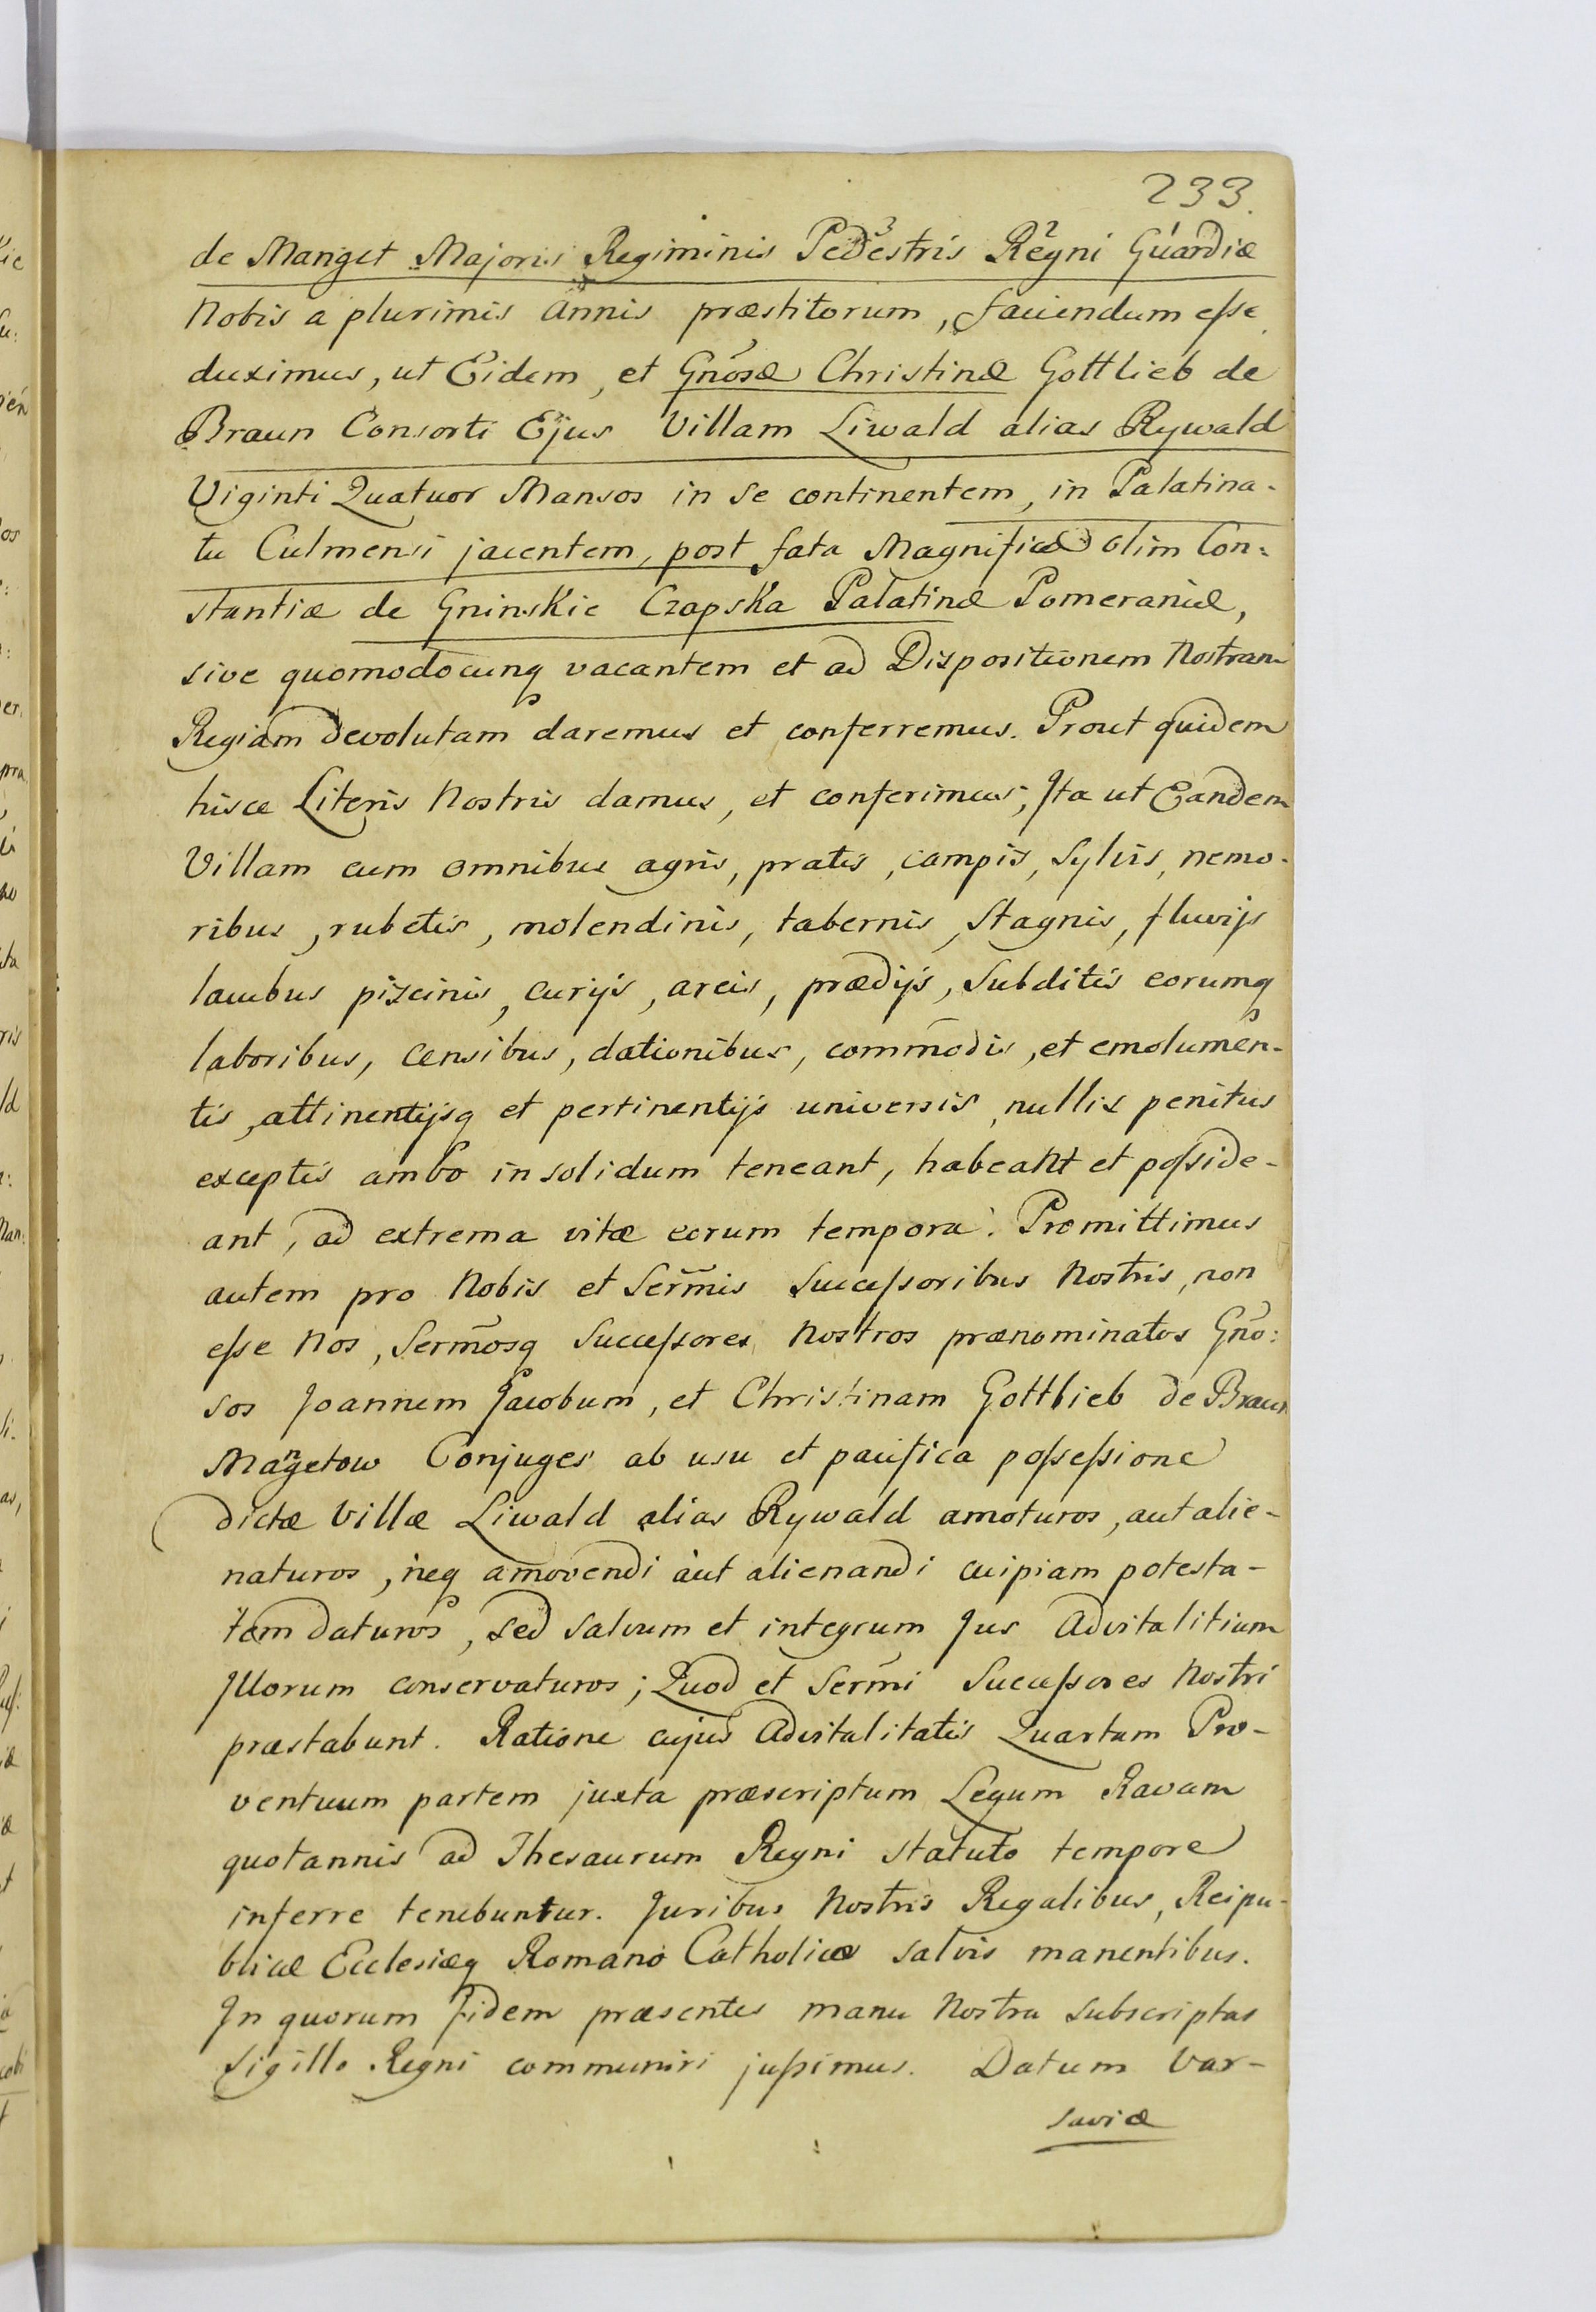 233.
de Manget Majoris Regiminis Pedestris Regni Guardiæ
Nobis a plurimis Annis præstitorum, faciendum eſse
duximus, ut Eidem, et Gnosæ Christinæ Gottlieb de
Braun Consorti Ejus Villam Liwald alias Rywald
Viginti Quatuor Mansos in se continentem, in Palatina-
tu Culmensi jacentem, post fata Magnificæ olim Con:
stantiæ de Gninskie Czapska Palatinæ Pomeraniæ,
sive quomodocunq vacantem et ad Dispositionem Nostram
Regiam devolutam daremus et conferremus. Prout quidem
hisce Literis Nostris damus, et conferimus; Ita ut Eandem
Villam cum omnibus agris, pratis, campis, sylvis, nemo-
ribus, rubetis, molendinis, tabernis, Stagnis, fluvijs
lacubus piscinis, curijs, areis, prædijs, Subditis eorumq
laboribus, censibus, dationibus, com̄odis, et emolumen-
tis, attinentijsq et pertinentijs universis, nullis penitus
exceptis ambo in solidum teneant, habeant et poſside-
ant, ad extrema vitæ eorum tempora. Promittimus
autem pro Nobis et Serm̄is Succeſsoribus Nostris, non
eſse Nos, Serm̄osq Succeſsores Nostros prænominatos Gno:
sos Joannem Jacobum, et Christinam Gottlieb de Braun
Mangetow Conjuges ab usu et pacifica poſseſsione
dictæ Villæ Liwald alias Rywald amoturos, aut alie-
naturos, neq amovendi aut alienandi cuipiam potesta-
tem daturos, sed salvum et integrum Jus Advitalitium
Illorum conservaturos; Quod et Serm̄i Succeſsores Nostri
præstabunt. Ratione cujus Advitalitatis Quartam Pro-
ventuum partem juxta præscriptum Legum Ravam
quotannis ad Thesaurum Regni statuto tempore
inferre tenebuntur. Juribus Nostris Regalibus, Reipu-
blicæ Ecclesiæq Romano Catholicæ salvis manentibus.
In quorum fidem præsentes manu Nostra subscriptas
Sigillo Regni communiri juſsimus. Datum Var-
saviæ